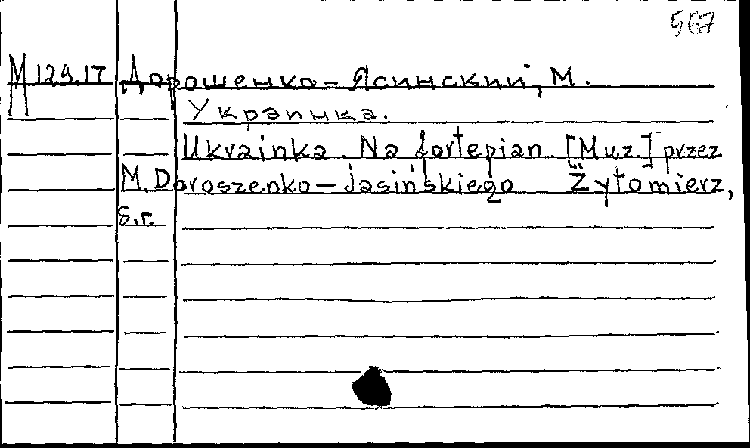 567
М 129.17 Дорошенко-Ясинский, М.
Украинка.
Ukrainka. Na fortepian [Muz.] przez
M. Doroszenko-Jasińskiego Żytomierz,
s.r.